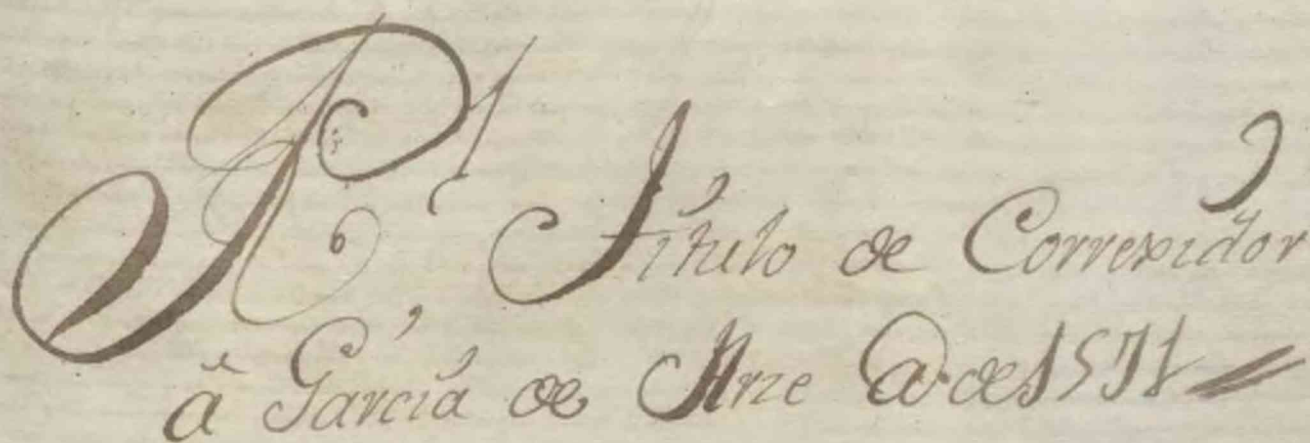 R.l título de Correxidor
â García de Arze A.º de 1571